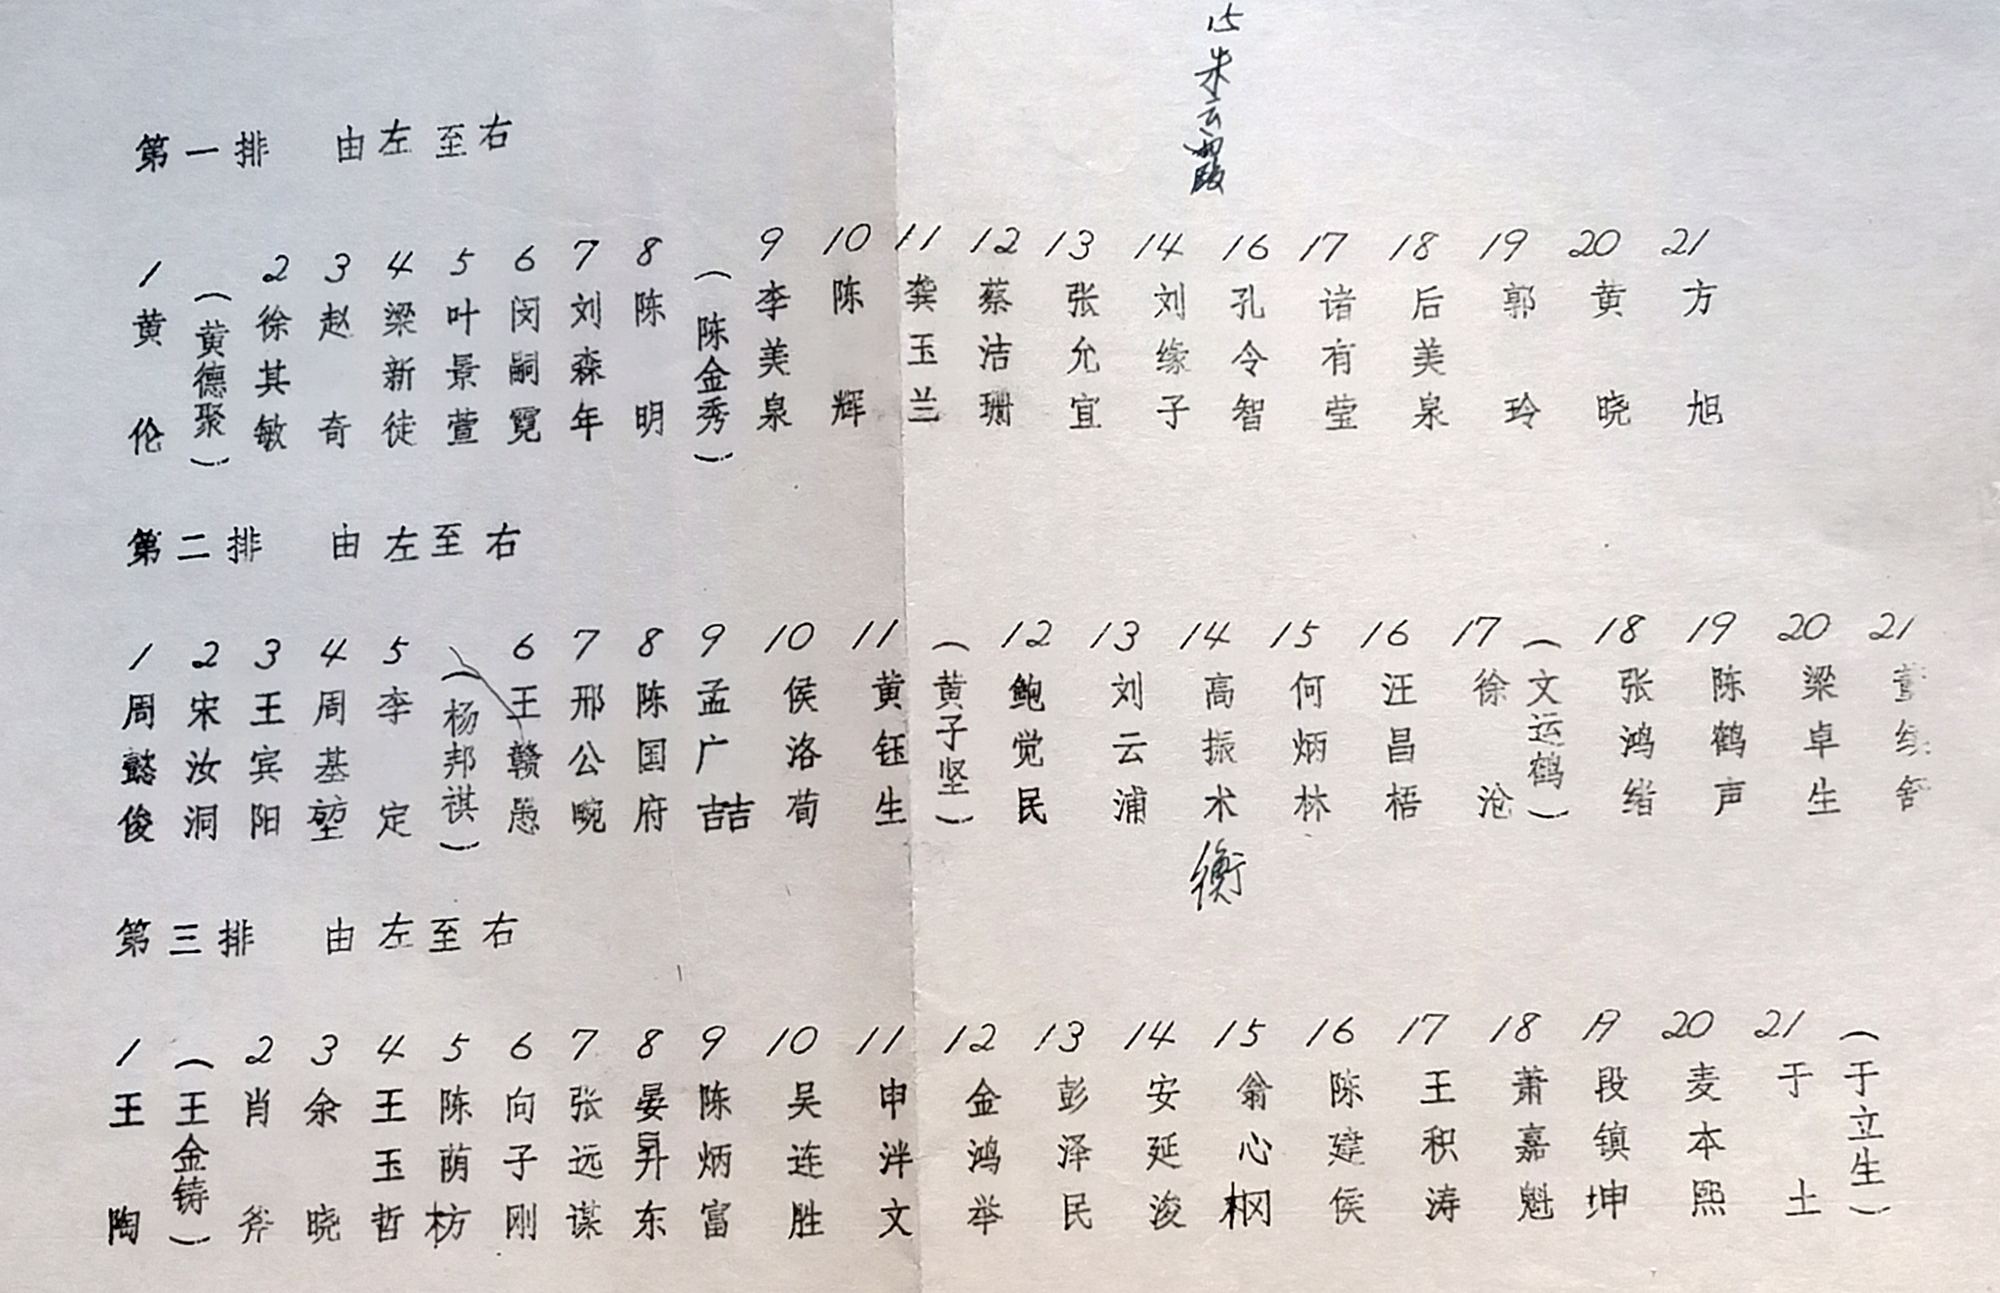 15 朱云霞
第一排 由左至右
1 黄伦 (黄德聚)
2 徐其敏
3 赵奇
4 梁新徒
5 叶景萱
6 闵嗣霓
7 刘森年
8 陈明 (陈金秀)
9 李美泉
10 陈辉
11 龚玉兰
12 蔡洁珊
13 张允宜
14 刘缘子
16 孔令智
17 诸有莹
18 后美泉
19 郭玲
20 黄晓
21 方旭
第二排 由左至右
1 周懿俊
2 宋汝洞
3 王宾阳
4 周基堃
5 李定 (杨邦祺)
6 王赣愚
7 邢公畹
8 陈国府
9 孟广喆
10 侯洛荀
11 黄钰生 (黄子坚)
12 鲍觉民
13 刘云浦
14 高振术 衡
15 何炳林
16 汪昌梧
17 徐沧 (文运鹤)
18 张鸿绪
19 陈鹤声
20 梁卓生
21 董续舒
第三排 由左至右
1 王陶 (王金铸)
2 肖斧
3 余晓
4 王玉哲
5 陈荫枋
6 向子刚
7 张远谋
8 晏昇东
9 陈炳富
10 吴连胜
11 申泮文
12 金鸿举
13 彭泽民
14 安延浚
15 翁心㭎
16 陈建侯
17 王积涛
18 萧嘉魁
19 段镇坤
20 麦本熙
21 于土 (于立生)